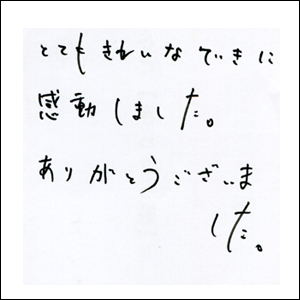 とてもきれいなできに
感動しました。
ありがとうございま
した。